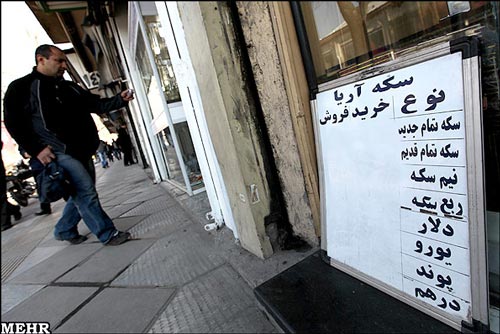 سکه آریا
نوع خرید فروش
سکه تمام جدید
سکه تمام قدیم
نیم سکه
ربع سکه
دلار
یورو
پوند
درهم
MEHR